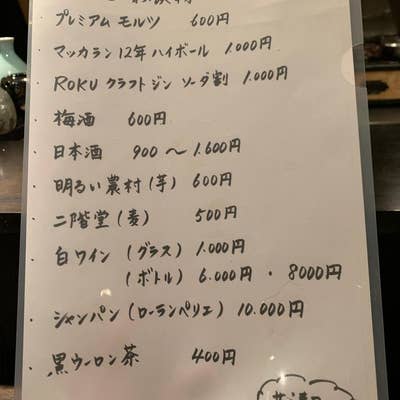 ・プレミアム モルツ 600円
・マッカラン12年ハイボール 1.000円
・ROKU クラフトジン ソーダ割 1.000円
・梅酒 600円
・日本酒 900 〜 1.600円
・明るい農村(芋) 600円
・二階堂(麦) 500円
・白ワイン (グラス) 1.000円
(ボトル) 6.000円 ・ 8000円
・シャンパン(ローランペリエ) 10.000円
・黒ウーロン茶 400円